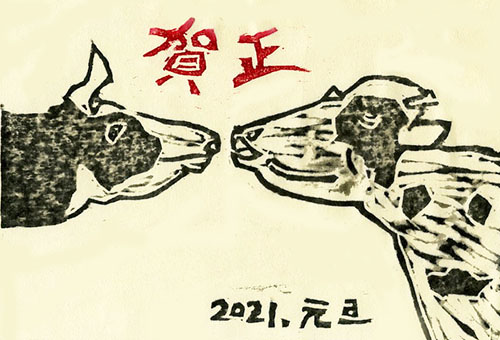 賀正
2021.元旦